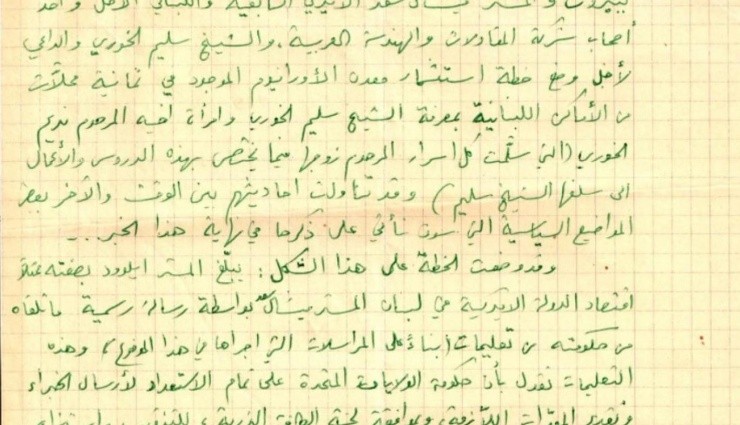 بيروت والمستر ميشال سعد الايدي السابقية واللبناني الاصل واحد
أصحاب شركة المقاولات والهندسة العربية، والشيخ سليم الخوري والداعي
لأجل وضع خطة استثمار معدن الأورانيوم الموجود في ثمانية محلّات
من الأماكن اللبنانية بمعرفة الشيخ سليم الخوري وامرأة اخيه المرحوم نديم
الخوري (التي سلّمت كل اسرار المرحوم زوجها فيما يختص بهذه الدروس والأعمال
الى سلفها الشيخ سليم) وقد تناولت احاديثهم بين الوقت والآخر بعض
المواضيع السياسية التي سوف نأتي على ذكرها في نهاية هذا الخبر...
وقد وضعت الخطة على هذا الشكل: يبلّغ المستر ايلوود بصفته ممثلاً
اقتصاد الدولة في لبنان المستر ميشال سعد بواسطة رسالة رسمية ما تلقاه
من حكومته من تعليمات (بناءً على المراسلات التي اجراها في هذا الموضوع) وهذه
التعليمات تقول بأن حكومة الولايات المتحدة على تمام الاستعداد لأرسال الخبراء
وتقديم اللازمة، وبموافقة لجنة الطاقة الذرية